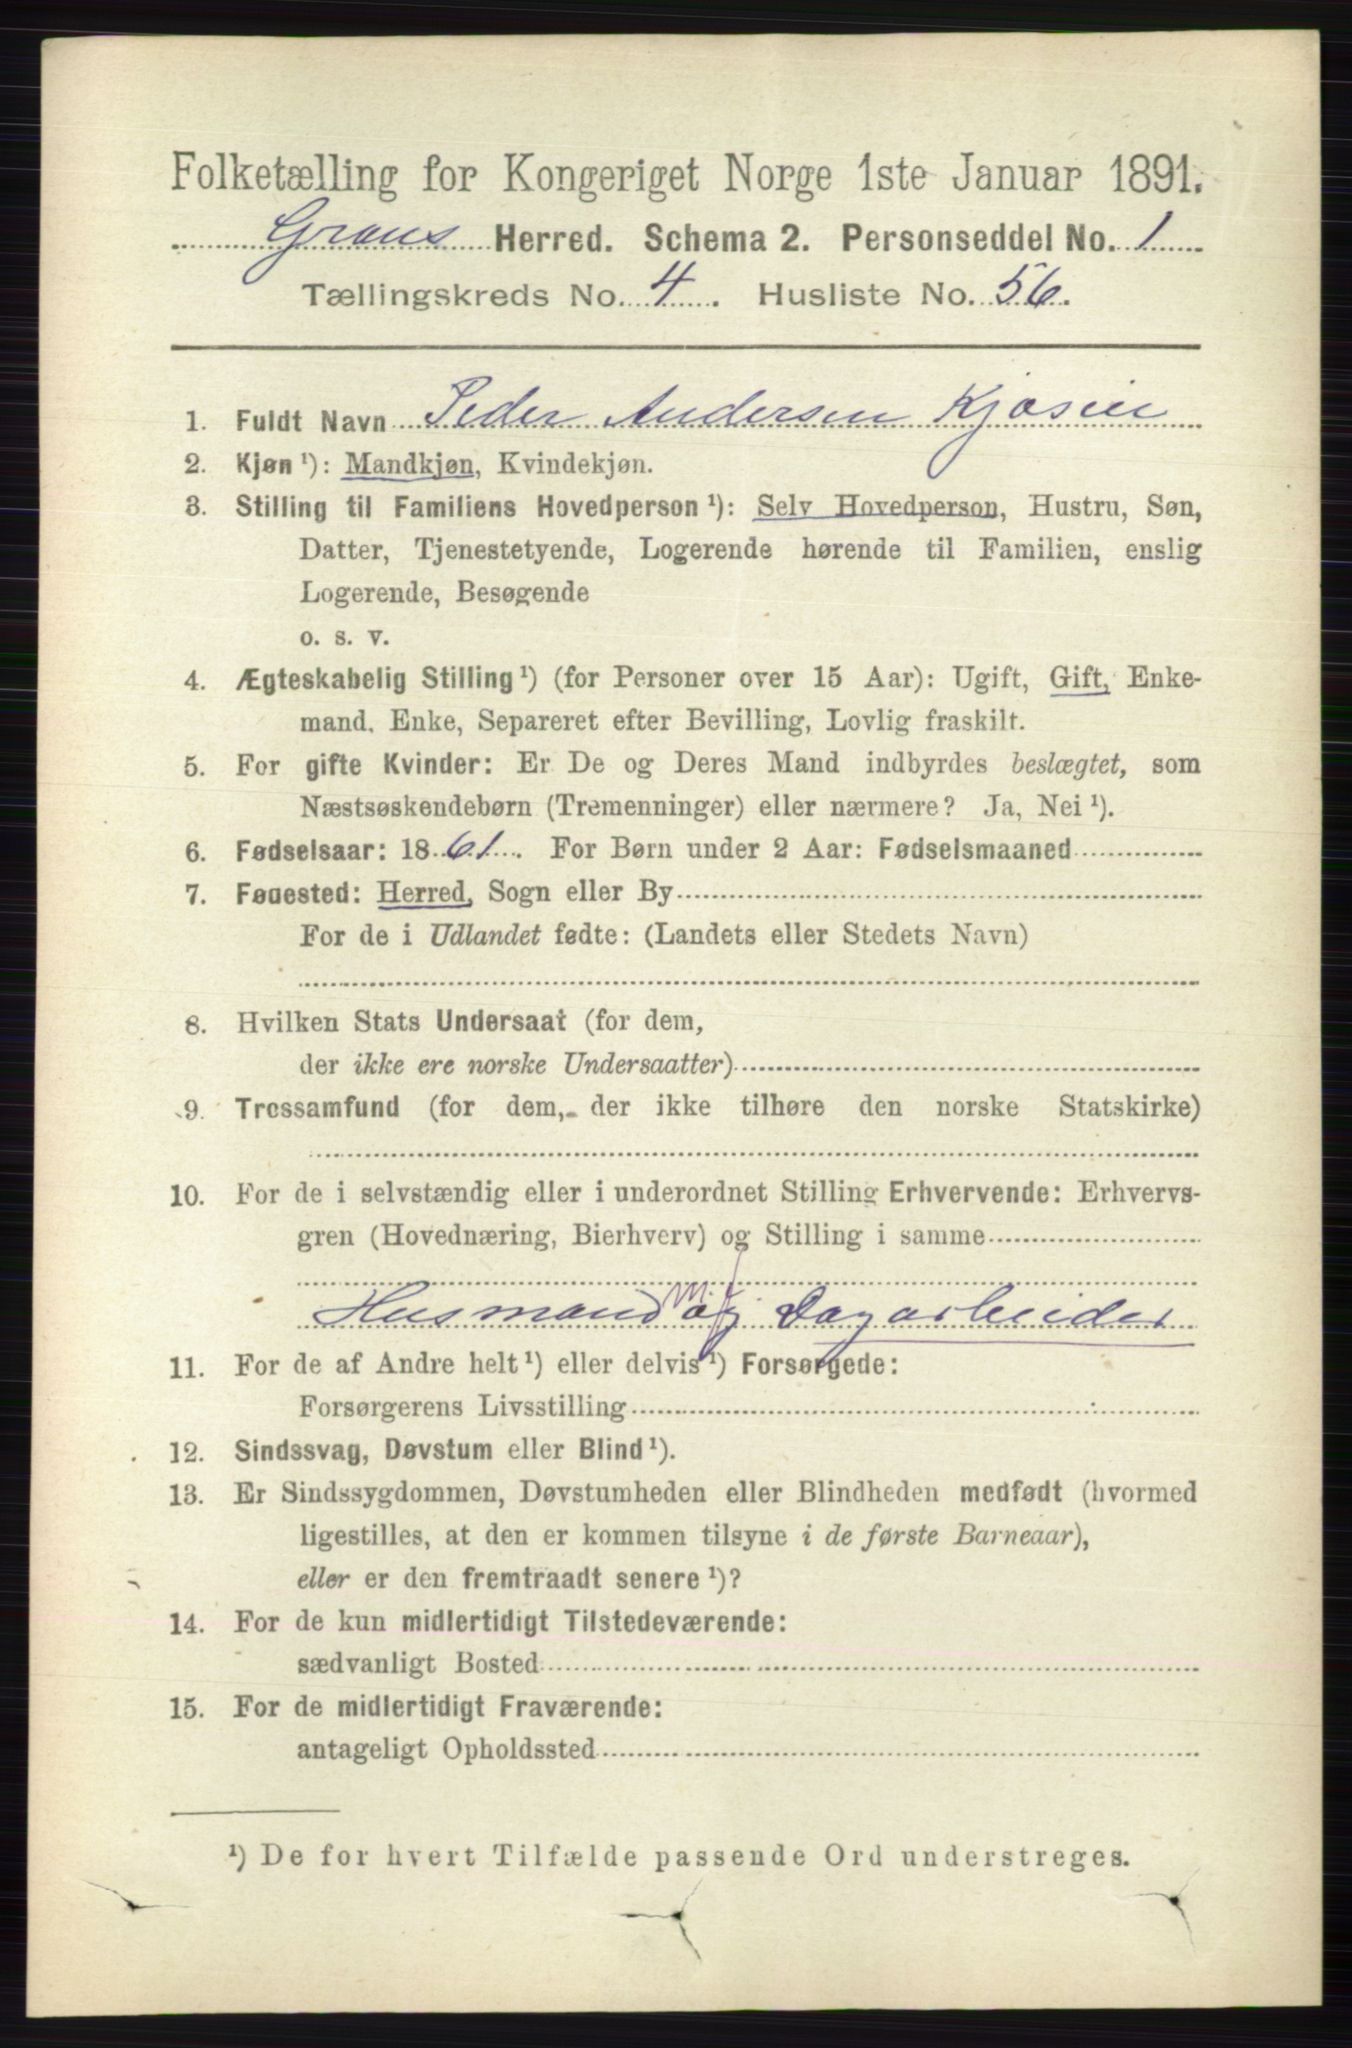 Folketælling for Kongeriget Norge 1ste Januar 1891.
Grans Herred. Schema 2. Personseddel No. 1
Tællingskreds No. 4. Husliste No. 56.
1. Fuldt Navn Peder Andersen Kjosen
2. Kjøn ¹): Mandkjøn, Kvindekjøn.
3. Stilling til Familiens Hovedperson ¹): Selv Hovedperson, Hustru, Søn,
Datter, Tjenestetyende, Logerende hørende til Familien, enslig
Logerende, Besøgende
o. s. v.
4. Ægteskabelig Stilling ¹) (for Personer over 15 Aar): Ugift, Gift, Enke-
mand, Enke, Separeret efter Bevilling, Lovlig fraskilt.
5. For gifte Kvinder: Er De og Deres Mand indbyrdes beslægtet, som
Næstsøskendebørn (Tremenninger) eller nærmere? Ja, Nei ¹).
6. Fødselsaar: 1861. For Børn under 2 Aar: Fødselsmaaned
7. Fødested: Herred, Sogn eller By
For de i Udlandet fødte: (Landets eller Stedets Navn)
8. Hvilken Stats Undersaat (for dem,
der ikke ere norske Undersaatter)
9. Trossamfund (for dem, der ikke tilhøre den norske Statskirke)
10. For de i selvstændig eller i underordnet Stilling Erhvervende: Erhvervs-
gren (Hovednæring, Bierhverv) og Stilling i samme
Husmand m. j. og Dagarbeider
11. For de af Andre helt ¹) eller delvis ¹) Forsørgede:
Forsørgerens Livsstilling
12. Sindssvag, Døvstum eller Blind ¹).
13. Er Sindssygdommen, Døvstumheden eller Blindheden medfødt (hvormed
ligestilles, at den er kommen tilsyne i de første Barneaar),
eller er den fremtraadt senere ¹)?
14. For de kun midlertidigt Tilstedeværende:
sædvanligt Bosted
15. For de midlertidigt Fraværende:
antageligt Opholdssted
¹) De for hvert Tilfælde passende Ord understreges.